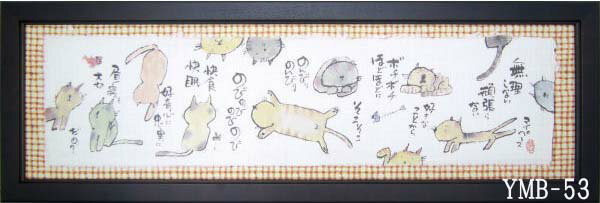 無理
しない
頑張ら
ない
マイ
ペース
ボチボチ
ほどほどに
好きな
ことだけ
のんびり
のんびり
そこそこ
のびのび
のびのび
快食
快眠
好奇心に
忠実に
昼寝も
大切
YMB-53